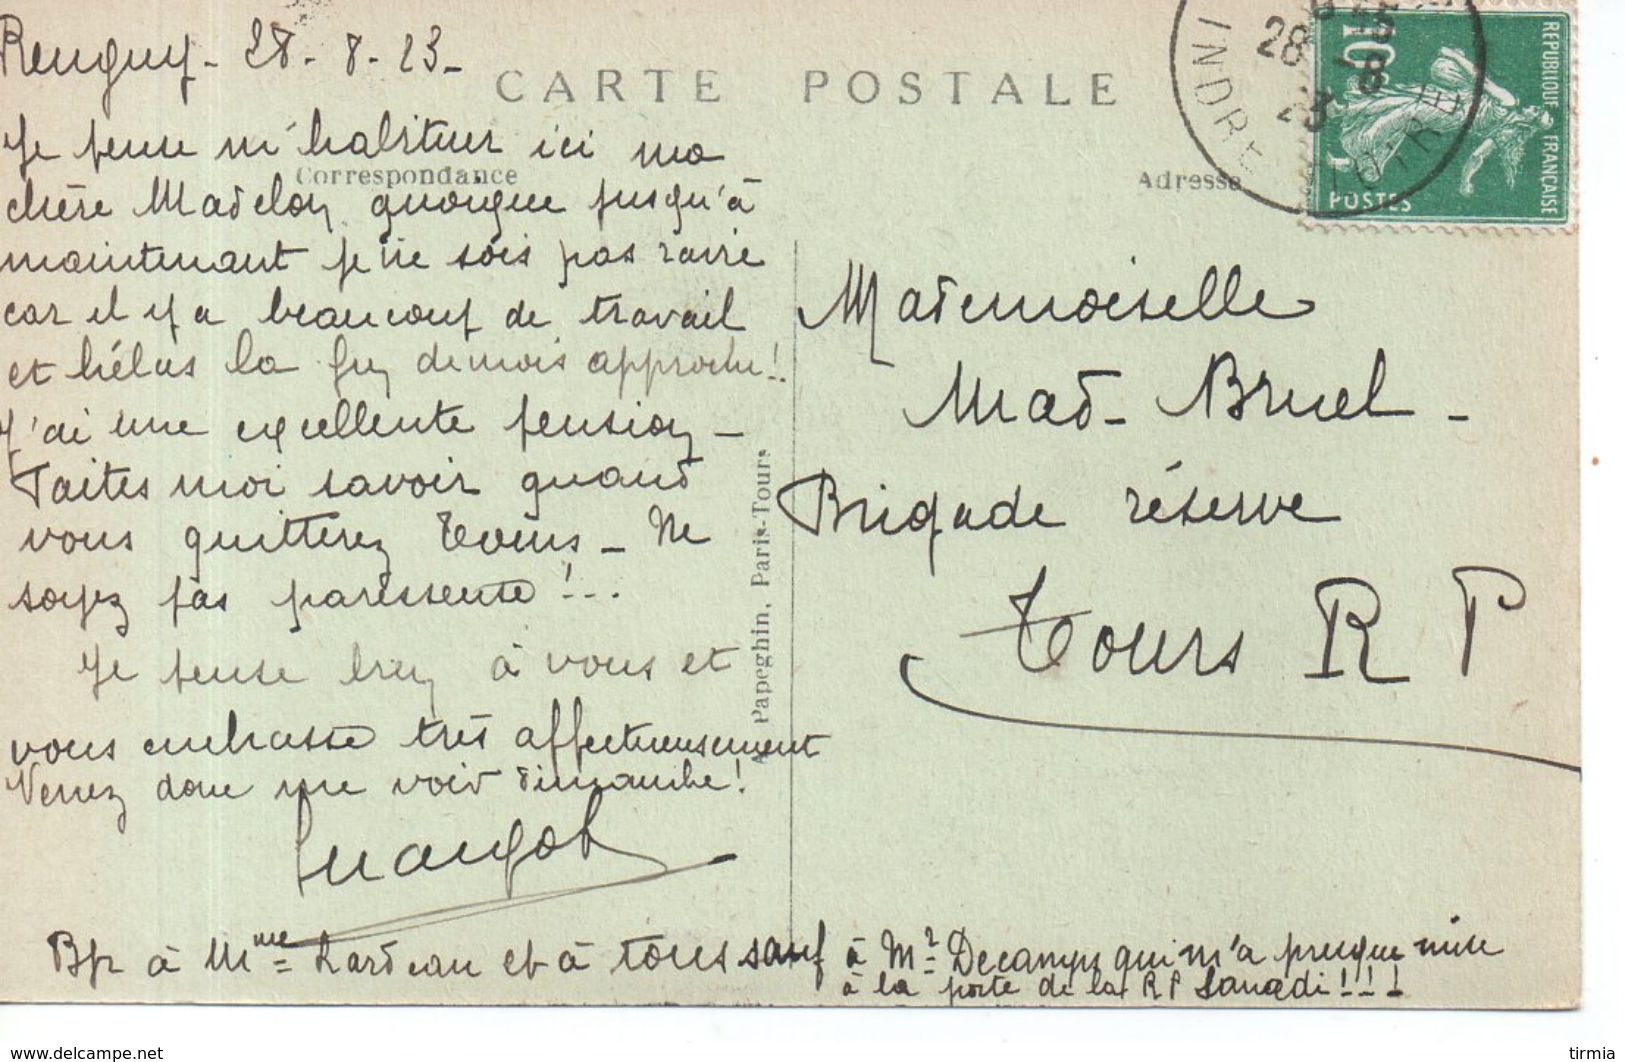 Reugny - 28 - 8 - 23 -
CARTE POSTALE
Correspondance
Adresse
Je pense m'habituer ici ma
chère Madelon quoique jusqu'à
maintenant je ne sois pas ravie
car il y a beaucoup de travail
et hélas la fin de mois approche !..
J'ai une excellente pension -
Faites moi savoir quand
vous quitterez Tours - Ne
soyez pas paresseuse !...
Je pense bien à vous et
vous embrasse très affectueusement
Venez donc me voir dimanche !
Margot
Bjr à Mme Lardeau et à tous sauf à Mr Decamps qui m'a presque mise
à la porte de la RP Samedi ! ! !
Mademoiselle
Mad - Bruel -
Brigade réserve
Tours R P
A. Papeghin, Paris-Tours
INDRE
LOIRE
28 - 8
23
10c
REPUBLIQUE FRANÇAISE
POSTES
http://www.delcampe.net
tirmia